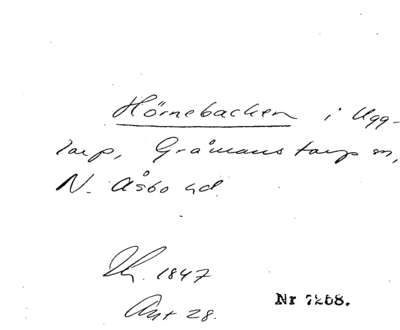 Hörnebacken i Ugg-
larp, Gråmanstorp sn,
N. Åsbo hd.
1847
Ant 28.
Nr 7268.